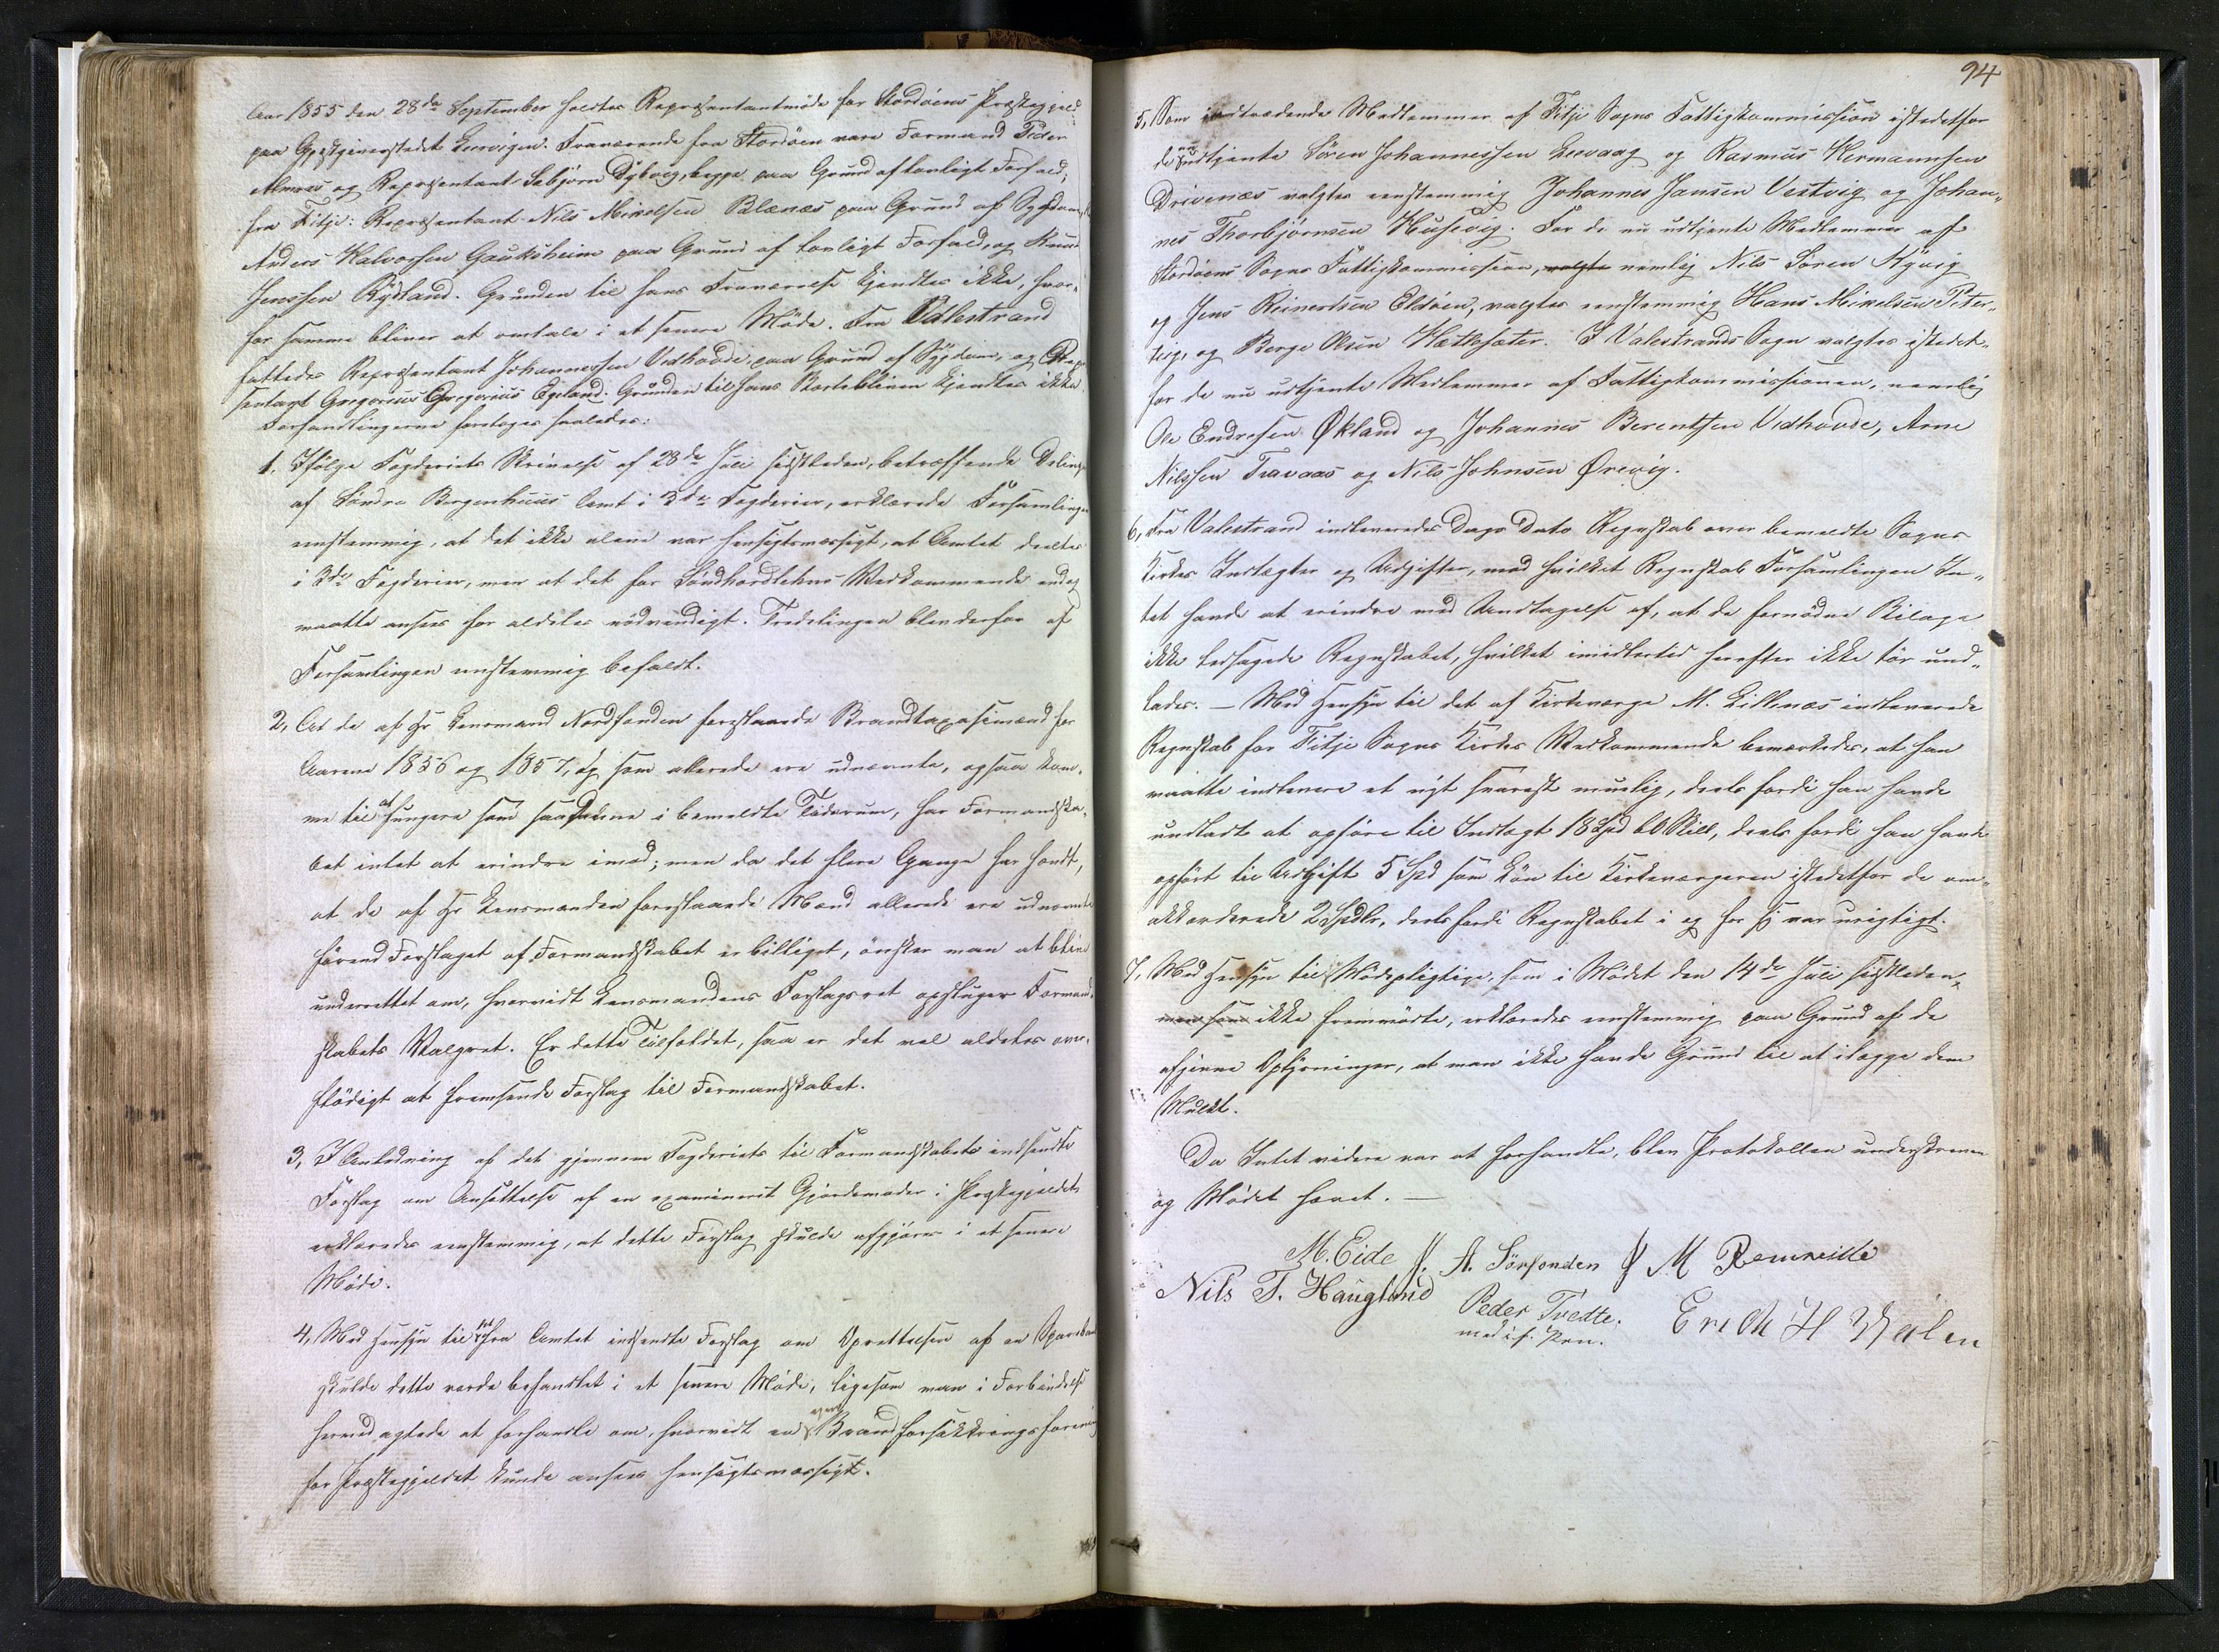 Aar 1855 den 28de September holdtes Repræsentantmöde for Stordöens Præstegjeld
paa Gjestgiverstedet Leervigen. Fraværende fra Stordöen vare Formand Peder
Almaas og Repræsentant Sebjörn Dybvig, begge paa Grund af lovligt Forfald;
fra Fitje: Repræsentant Nils Mikelsen Blænæs paa Grund af Sygdom,
Anders Halvorsen Gauksheim paa Grund af lovligt Forfald, og Knud
Jenssen Rydland. Grunden til hans Fraværelse kjendtes ikke, hvor-
for samme bliver at omtale i et senere Möde. Fra Valestrand
fattedes Repræsentant Johannessen Vedhovde paa Grund af Sygdom, og Repræ-
sentant Gregorius Gregorius Egeland. Grunden til hans Borteblivem kjendtes ikke.
Forhandlingerne foretoges saaledes:
1. Ifölge Fogderiets Skrivelse af 28de Juli sidstleden, betræffende Deling
af Söndre Bergenhuus Amt i 3de Fogderier, erklærede Forsamlingen
enstemmig, at det ikke alene var hensigtsmæssigt, at Amtet deeltes
i 3de Fogderier, men at det for Söndhordlehns Vedkommende endog
maatte ansees for aldeles nödvendigt. Tredelingen blev derfor af
Forsamlingen enstemmig befalet.
2, At de af Hr Lensmand Nordfonden foreslaaede Brandtaxasimænd for
Aarene 1856 og 1857, og som allerede ere udnævnte, ogsaa kom-
me til at fungere som saadanne i bemeldte Tidsrum, har Formandska-
bet intet at erindre imod; men da det flere Gange har hændt,
at de af Hr Lensmanden foreslaaede Mænd allerede ere udnævnte
förend Forslaget af Formandskabet er billiget, önsker man at blive
underrettet om, hvorvidt Lensmandens Forslagsret opsluger Formand-
skabets Valgret. Er dette Tilfældet, saa er det vel aldeles over-
flödigt at fremsende Forslag til Formandskabet.
3, I Anledning af det gjennem Fogderiets til Formandskabets indsendte
Forslag om Ansættelse af en examineret Gjordemoder i Præstegjeldet
erklæredes enstemmig, at dette Forslag skulde afgjöres i et senere
Möde.
4, Med Hensyn til det fra Amtet indsendte Forslag om Oprettelsen af en Sparebank
skulde dette vorde behandlet i et senere Möde, ligesom man i Forbindelse
hermed agtede at forhandle om, hvorvidt en Brandforsikkringsforening
for Præstegjeldet kunde ansees hensigtsmæssigt.
94
5, Som indtrædende Medlemmer af Fitje Sogns Fattigkommission istedetfor
de nu udtjente Sören Johannessen Leevaag og Rasmus Hermannsen
Drivenæs valgtes enstemmig Johannes Jansen Vestvig og Johan-
nes Thorbjörnsen Husevig. For de nu udtjente Medlemmer af
Stordöens Sogns Fattigkommission, valgte nemlig Nils Sören Kyvig
og Jens Reinertsen Eldöen, valgtes enstemmig Hans Mikelsen Peter-
teig, og Berge Olsen Hættesæter. I Valestrands Sogn valgtes istedet-
for de nu udtjente Medlemmer af Fattigkommissionen, nemlig
Ole Endresen Økland og Johannes Berentsen Vedhovde, Arne
Nilssen Travaas og Nils Johnsen Ørevig.
6, Fra Valestrand indleveredes Dags Dato Regnskab over bemeldte Sogns
Kirkes Indtægter og Udgifter, mod hvilket Regnskab Forsamlingen In-
tet havde at erindre med Undtagelse af, at de fornödne Bilage
ikke ledsagede Regnskabet, hvilket imidlertid herefter ikke tör und-
lades. — Med Hensyn til det af Kirkeværge M. Lillenæs indleverede
Regnskab for Fitje Sogns Kirkes Vedkommende bemærkedes, at han
maatte indlevere et nyt snarest muelig, deels fordi han havde
undladt at opföre til Indtægt 18 Spd 60 Skill, deels fordi han havde
opfört til Udgift 5 Spd som Lön til Kirkeværgeren istedetfor de om-
akkorderede 2 Spdlr, deels fordi Regnskabet i og for sig var urigtigt.
7, Med Hensyn til Mödepligtige, som i Mödet den 14de Juli sidstleden,
men som ikke fremmödte, erklæredes enstemmig paa Grund af de
afgivne Oplysninger, at man ikke havde Grund til at ilægge dem
Mulkt.
Da Intet videre var at forhandle, blev Protokollen underskreven
og Mödet hævet. —
M. Eide J. A. Sörfonden J M Remreitte
Nils T. Haugland Peder Tvedte. Erik H Vestlen
med i. f. Pen.